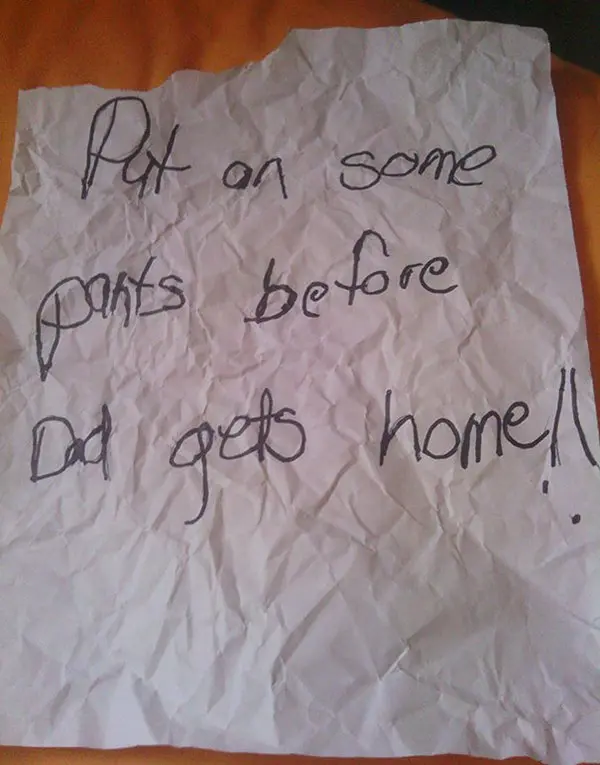 Put on some
pants before
Dad gets home!!